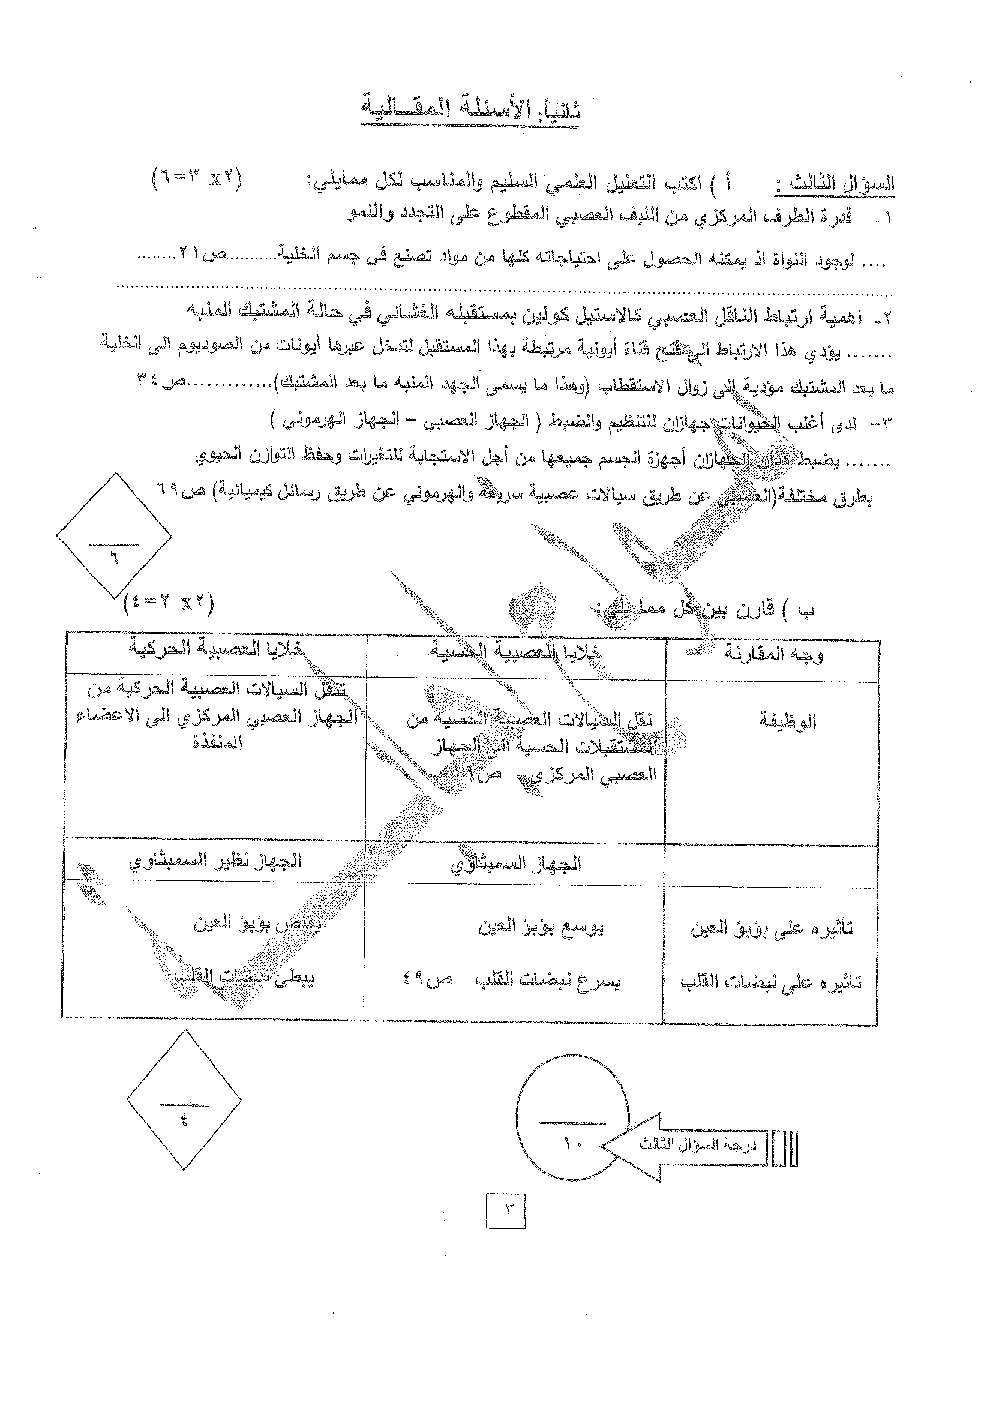 ثانيا: الأسئلة المقـــالية
السؤال الثالث : أ ) اكتب التعليل العلمي السليم والمناسب لكل ممايلي: (٢ x ٣=٦)
١- قدرة الطرف المركزي من الليف العصبي المقطوع على التجدد والنمو
.... لوجود النواة اذ يمكنه الحصول على احتياجاته كلها من مواد تصنع في جسم الخلية..........ص٢١........
٢- أهمية ارتباط الناقل العصبي كالاستيل كولين بمستقبله الغشائي في حالة المشتبك المنبه
....... يؤدي هذا الارتباط الى فتح قناة أيونية مرتبطة بهذا المستقبل لتدخل عبرها أيونات من الصوديوم الى الخلية
ما بعد المشتبك مؤدية الى زوال الاستقطاب (وهذا ما يسمى الجهد المنبه ما بعد المشتبك)............ص٣٤
٣- لدى أغلب الحيوانات جهازان للتنظيم والضبط ( الجهاز العصبي – الجهاز الهرموني )
....... يضبط الجهازان أجهزة الجسم جميعها من أجل الاستجابة للتغيرات وحفظ التوازن الحيوي
بطرق مختلفة(العصبي عن طريق سيالات عصبية سريعة والهرموني عن طريق رسائل كيميائية) ص٦٩
٦
ب ) قارن بين كل مما يلي: (٢ x ٢=٤)
وجه المقارنة خلايا العصبية الحسية خلايا العصبية الحركية
الوظيفة
نقل السيالات العصبية الحسية من
المستقبلات الحسية الى الجهاز
العصبي المركزي
تنقل السيالات العصبية الحركية من
الجهاز العصبي المركزي الى الاعضاء
المنفذة
الجهاز السمبثاوي الجهاز نظير السمبثاوي
تأثيره على بؤبؤ العين يوسع بؤبؤ العين بؤبؤ العين
تاثيره على نبضات القلب يسرع نبضات القلب ص٤٩ يبطى نبضات القلب
٤
١٠
درجة السؤال الثالث
٣